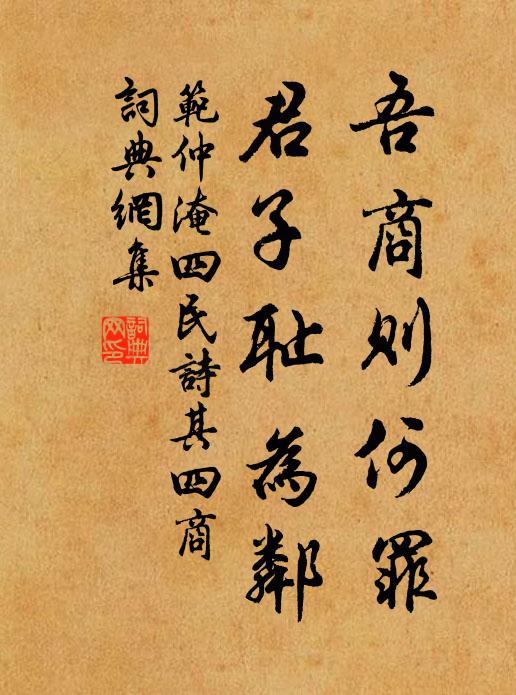 吾商則何罪
君子耻為鄰
範仲淹四民詩其四商
詞典網集
詞典网印